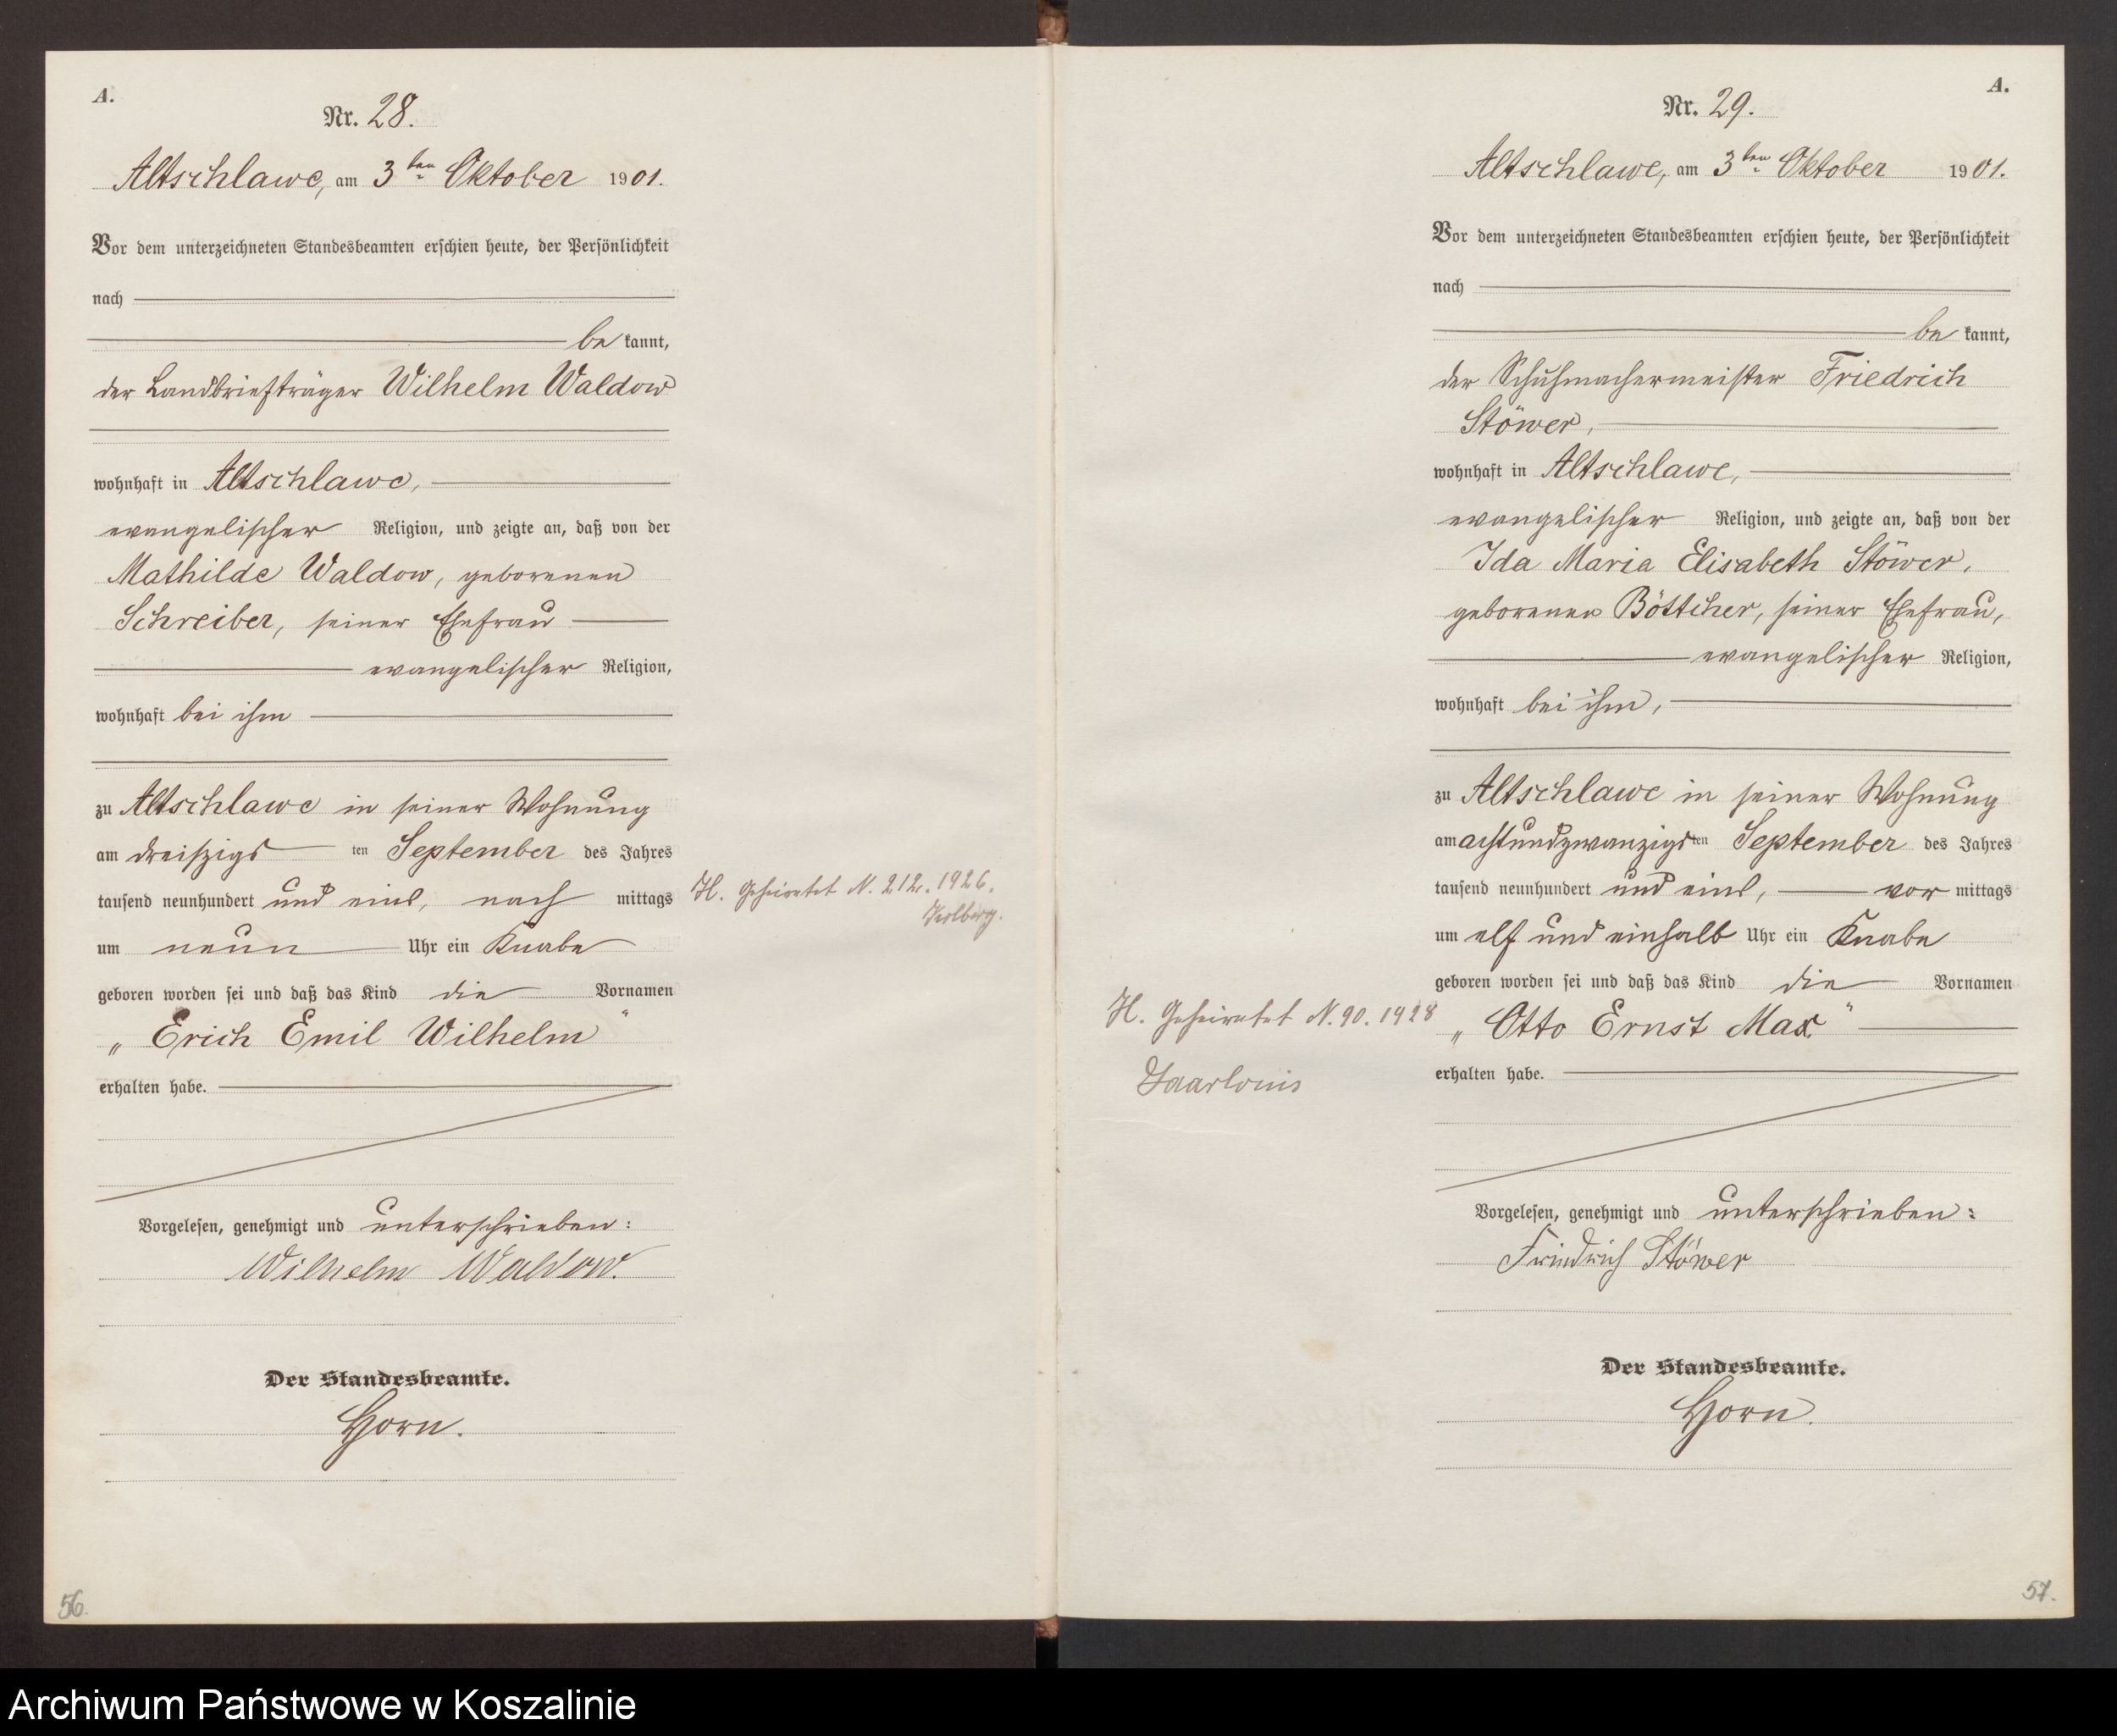 A.
Nr. 28.
Altschlawe, am 3ten Oktober 1901.
Vor dem unterzeichneten Standesbeamten erschien heute, der Persönlichkeit
nach
be kannt,
der Landbriefträger Wilhelm Waldow
wohnhaft in Altschlawe,
evangelischer Religion, und zeigte an, daß von der
Mathilde Waldow, geborenen
Schreiber, seiner Ehefrau
evangelischer Religion,
wohnhaft bei ihm
zu Altschlawe in seiner Wohnung
am dreiszigs ten September des Jahres
tausend neunhundert und eins, nach mittags
um neun Uhr ein Knabe
geboren worden sei und daß das Kind die Vornamen
„Erich Emil Wilhelm"
erhalten habe.
Vorgelesen, genehmigt und unterschrieben:
Wilhelm Waldow.
Der Standesbeamte.
Horn.
H. Geheiratet N. 212. 1926.
Kolberg.
56.
A.
Nr. 29.
Altschlawe, am 3ten Oktober 1901.
Vor dem unterzeichneten Standesbeamten erschien heute, der Persönlichkeit
nach
be kannt,
der Schuhmachermeister Friedrich
Stöwer,
wohnhaft in Altschlawe,
evangelischer Religion, und zeigte an, daß von der
Ida Maria Elisabeth Stöwer,
geborenen Böttcher, seiner Ehefrau,
evangelischer Religion,
wohnhaft bei ihm,
zu Altschlawe in seiner Wohnung
am achtundzwanzigs ten September des Jahres
tausend neunhundert und eins, vor mittags
um elf und einhalb Uhr ein Knabe
geboren worden sei und daß das Kind die Vornamen
„Otto Ernst Max"
erhalten habe.
Vorgelesen, genehmigt und unterschrieben:
Friedrich Stöwer
Der Standesbeamte.
Horn.
H. Geheiratet N. 90. 1928
Saarlouis
57.
Archiwum Państwowe w Koszalinie